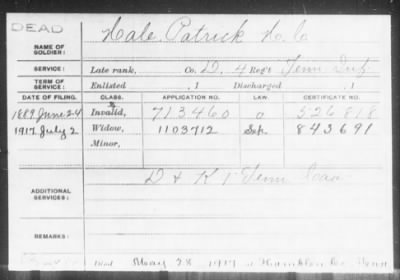 DEAD
NAME OF SOLDIER: Hale Patrick
SERVICE: Late rank, Co. D, 4 Reg't Tenn Inf
TERM OF SERVICE: Enlisted , 1 Discharged , 1
DATE OF FILING. CLASS. APPLICATION NO. LAW. CERTIFICATE NO.
1889 June 24 Invalid, 713460 526818
1917 July 2 Widow, 1103712 Sep. 843691
Minor,
ADDITIONAL SERVICES: D & K 1 Tenn Cav
REMARKS:
Died May 28 1917 at Hamblen Co Tenn